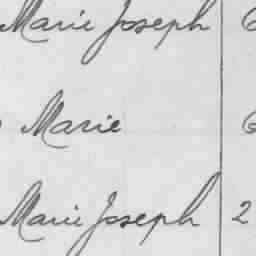 Marie Joseph
Marie
Marie Joseph 2